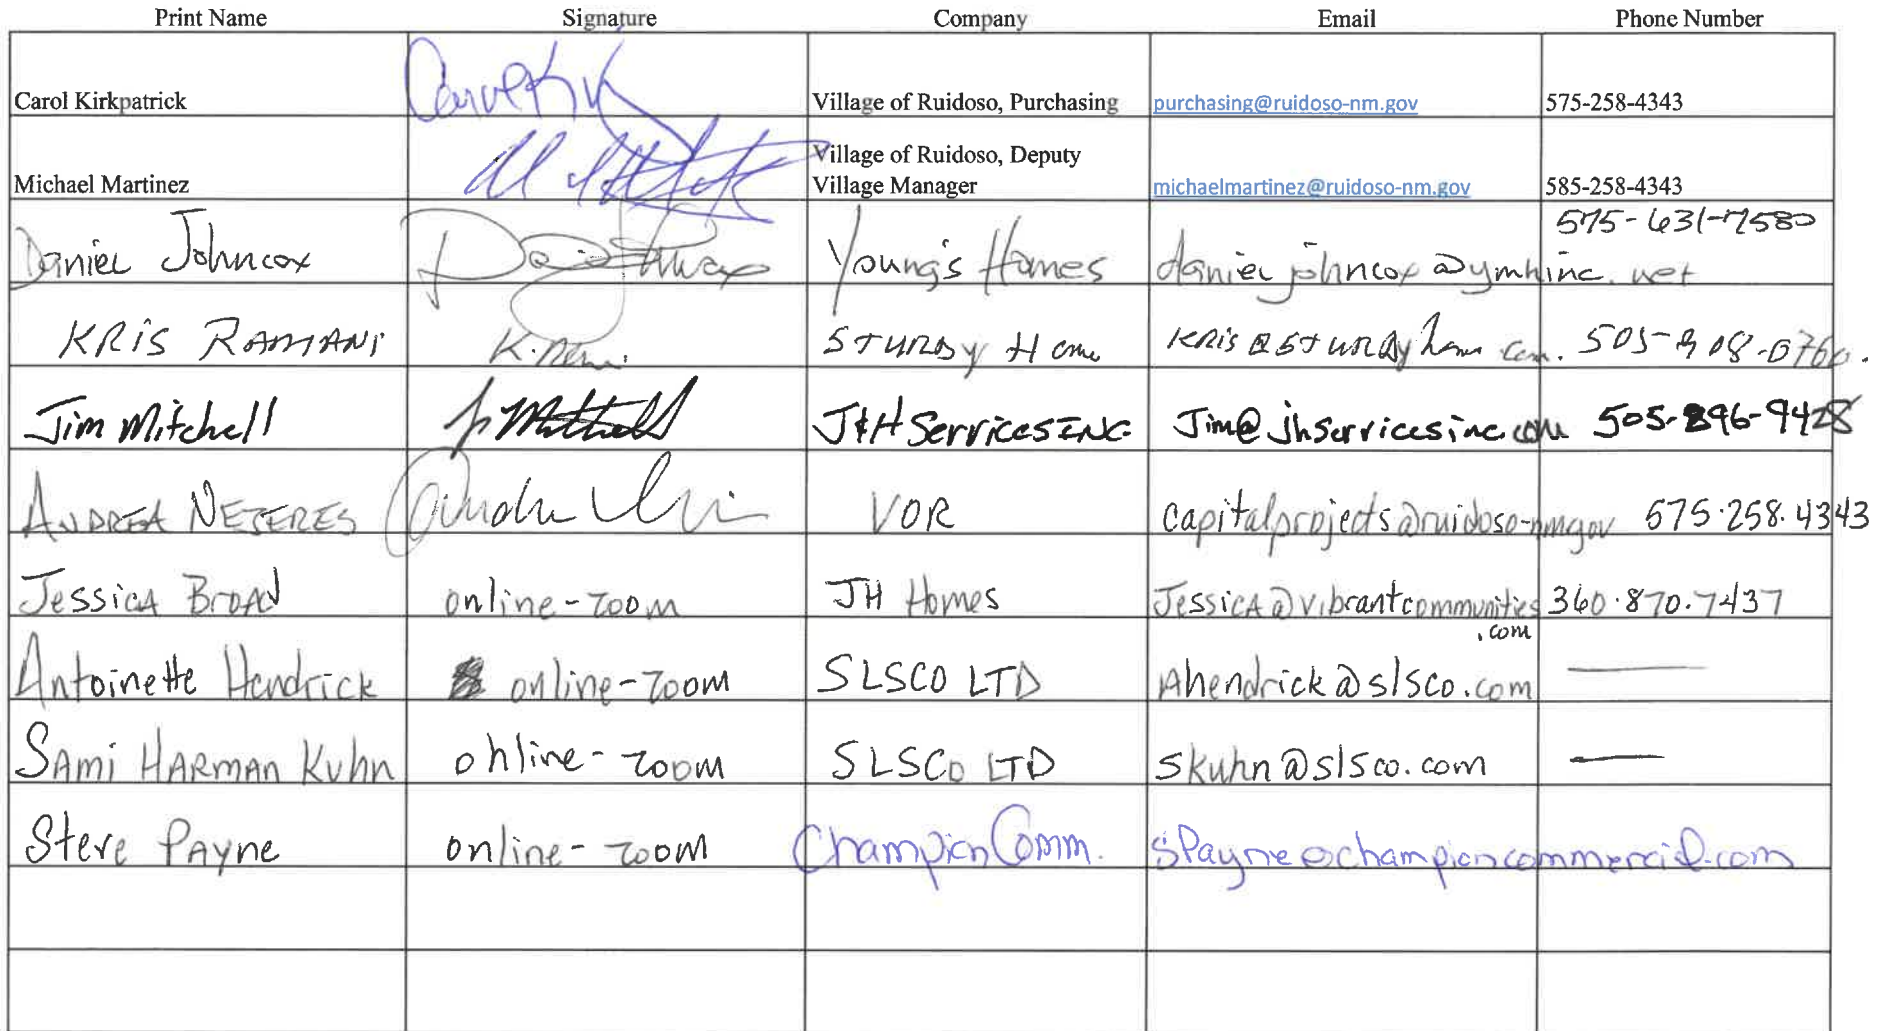 Print Name Signature Company Email Phone Number
Carol Kirkpatrick Village of Ruidoso, Purchasing purchasing@ruidoso-nm.gov 575-258-4343
Village of Ruidoso, Deputy
Michael Martinez Village Manager michaelmartinez@ruidoso-nm.gov 585-258-4343
575-631-7580
Daniel Johncox Young's Homes danieljohncox@ymhinc.net
KRIS RAMANI STURDY Home KRIS@STURDYhome com. 505-908-0760.
Jim Mitchell J&H Services INC. Jim@jhservicesinc.com 505-896-9428
ANDREA NEJERES VOR capitalprojects@ruidoso-nm.gov 575.258.4343
JessicA BroAd online-zoom JH Homes JessicA@vibrantcommunities 360.870.7437
.com
Antoinette Hendrick online-zoom SLSCO LTD Ahendrick@slsco.com
SAmi HARMAN Kuhn online-zoom SLSCo LTD skuhn@slsco.com
Steve PAyne online-zoom Champion Comm. sPayne@championcommercial.com